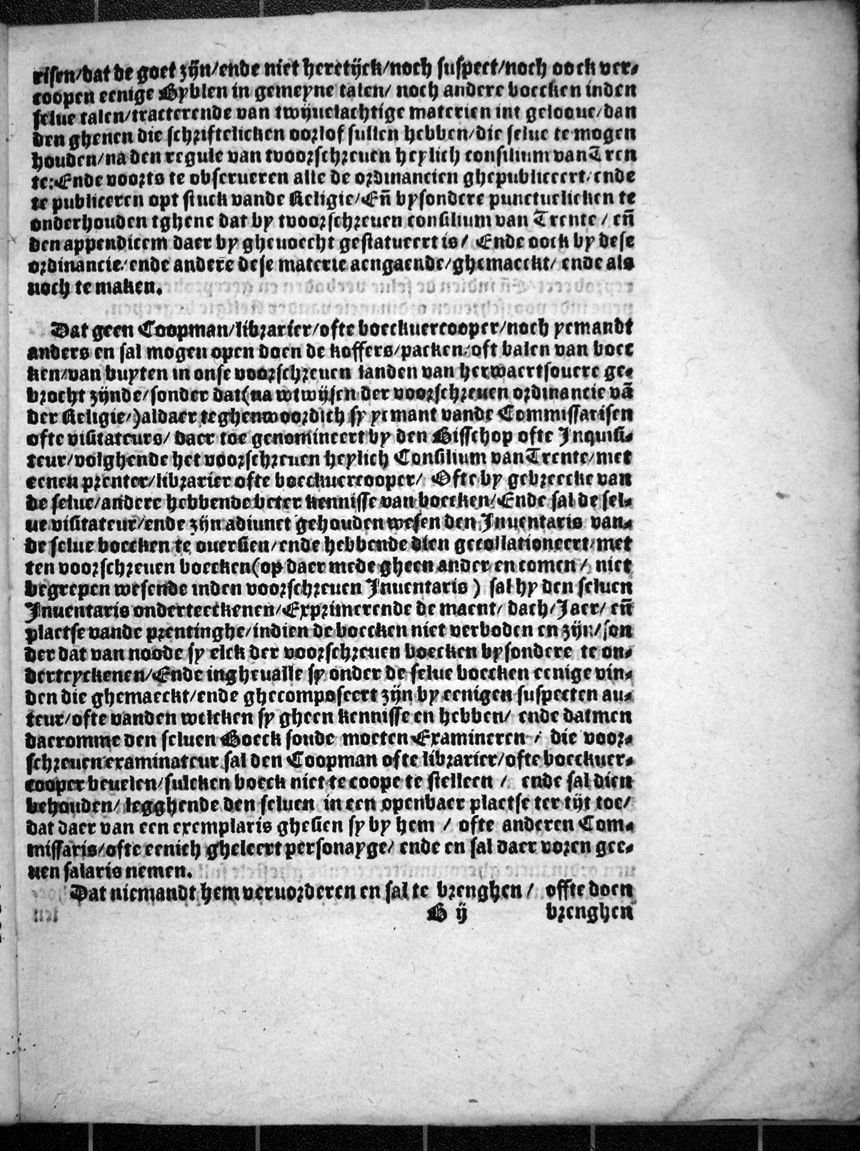 risen/dat de goet zijn/ende niet heretijck/noch suspect/noch oock ver-
coopen eenige Byblen in gemeyne talen/ noch andere boecken inden
selue talen/tracterende van twijuelachtige materien int gelooue/dan
den ghenen die schriftelicken oorlof sullen hebben/die selue te mogen
houden/na den regule van tvoorschreuen heylich consilium van Tren
te: Ende voorts te obserueren alle de ordinancien ghepubliceert/ende
te publiceren opt stuck vande Religie/Eñ bysondere punctuelicken te
onderhouden tghene dat by tvoorschreuen consilium van Trente / eñ
den appendicem daer by gheuoecht gestatueert is/ Ende oock by dese
ordinancie/ende andere dese materie aengaende/ghemaeckt/ ende als
noch te maken.
Dat geen Coopman/librarier/ofte boeckuercooper/noch yemandt
anders en sal mogen open doen de koffers/packen/oft balen van boec
ken/van buyten in onse voorschreuen landen van herwaertsouere ge-
brocht zijnde/sonder dat(na wtwijsen der voorschreuen ordinancie vã
der Religie/)aldaer teghenwoordich sy yemant vande Commissarisen
ofte visitateurs/ daer toe genomineert by den Bisschop ofte Inquisi-
teur/volghende het voorschreuen heylich Consilium van Trente/met
eenen prenter/librarier ofte boeckuercooper/ Ofte by gebreecke van
de selue/andere hebbende beter kennisse van boecken/Ende sal de sel-
ue visitateur/ende zijn adiunct gehouden wesen den Inuentaris van-
de selue boecken te ouersien/ende hebbende dien gecollationeert/met
ten voorschreuen boecken(op daer mede gheen ander en comen/ niet
begrepen wesende inden voorschreuen Inuentaris) sal hy den seluen
Inuentaris onderteeckenen/Exprimerende de maent/ dach/Jaer/ eñ
plaetse vande prentinghe/indien de boecken niet verboden en zijn/son
der dat van noode sy elck der voorschreuen boecken bysondere te on-
derteyckenen/Ende ingheualle sy onder de selue boecken eenige vin-
den die ghemaeckt/ende ghecomposeert zijn by eenigen suspecten au-
teur/ofte vanden welcken sy gheen kennisse en hebben/ ende datmen
daeromme den seluen Boeck soude moeten Examineren / die voor-
schreuen examinateur sal den Coopman ofte librarier/ofte boeckuer-
cooper beuelen/sulcken boeck niet te coope te stelleen / ende sal dien
behouden/ legghende den seluen in een openbaer plaetse ter tijt toe/
dat daer van een exemplaris ghesien sy by hem / ofte anderen Com-
missaris/ofte eenich gheleert personayge/ ende en sal daer voren gee-
nen salaris nemen.
Dat niemandt hem veruorderen en sal te brenghen/ offte doen
B ij brenghen